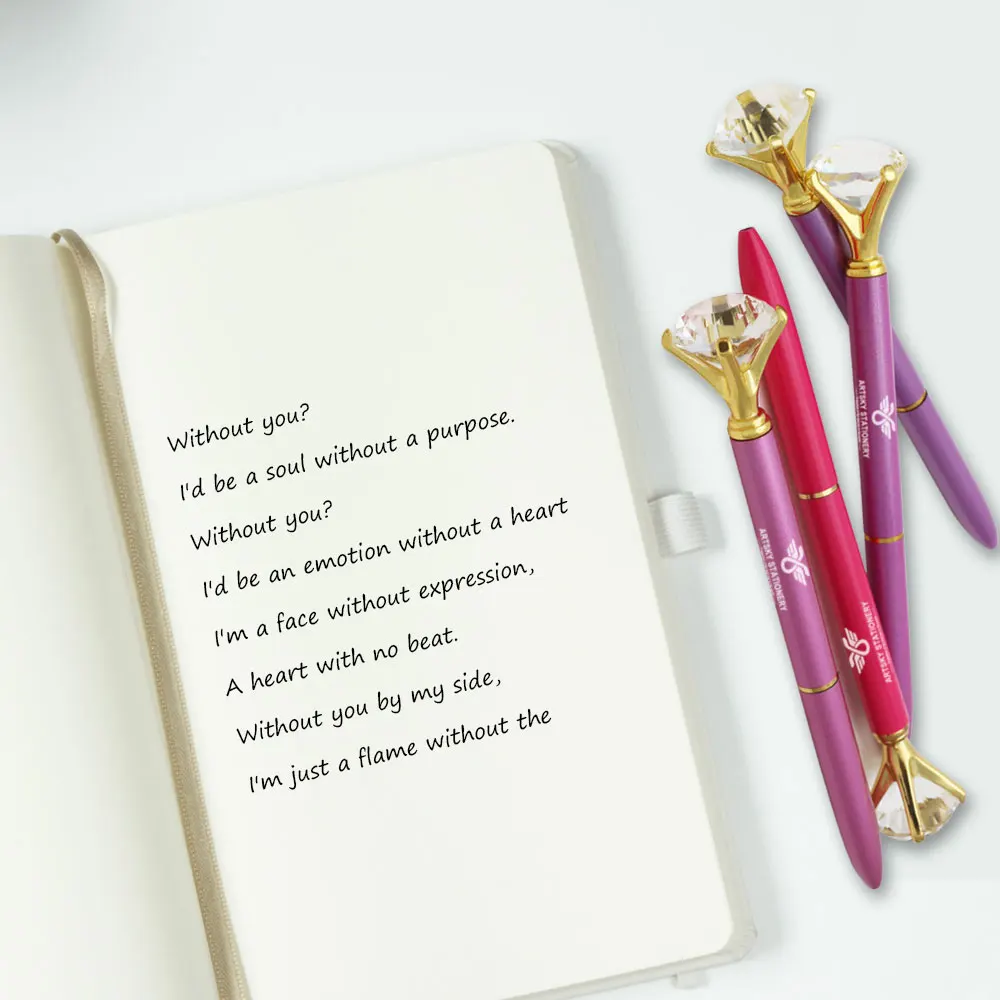 Without you?
I'd be a soul without a purpose.
Without you?
I'd be an emotion without a heart
I'm a face without expression,
A heart with no beat.
Without you by my side,
I'm just a flame without the
ARTSKY STATIONERY
ARTSKY STATIONERY
ARTSKY STATIONERY